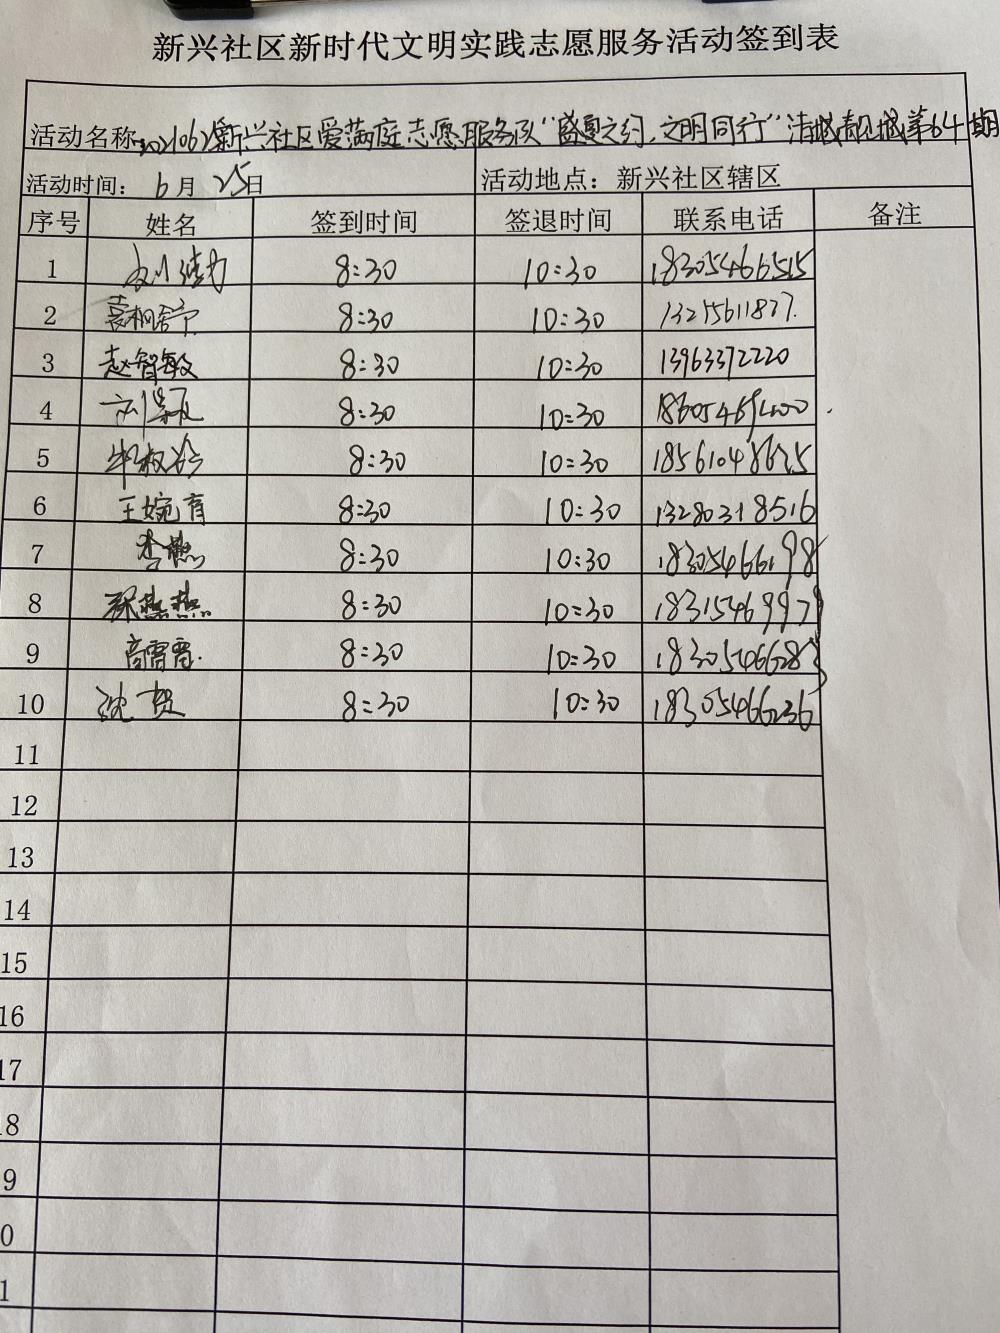 新兴社区新时代文明实践志愿服务活动签到表
活动名称: 新兴社区爱满庭志愿服务队“盛夏之约,文明同行”清城靓城第64期
活动时间: 6月25日 活动地点: 新兴社区辖区
序号 姓名 签到时间 签退时间 联系电话 备注
1 8:30 10:30 18305466515
2 8:30 10:30
3 赵智敏 8:30 10:30 13963372220
4 8:30 10:30
5 8:30 10:30
6 王婉育 8:30 10:30 13280318516
7 李燕 8:30 10:30 18305466198
8 燕燕 8:30 10:30 18315469979
9 高霄霄 8:30 10:30 18305466283
10 沈贺 8:30 10:30 18305466236
11
12
13
14
15
16
17
18
9
0
1